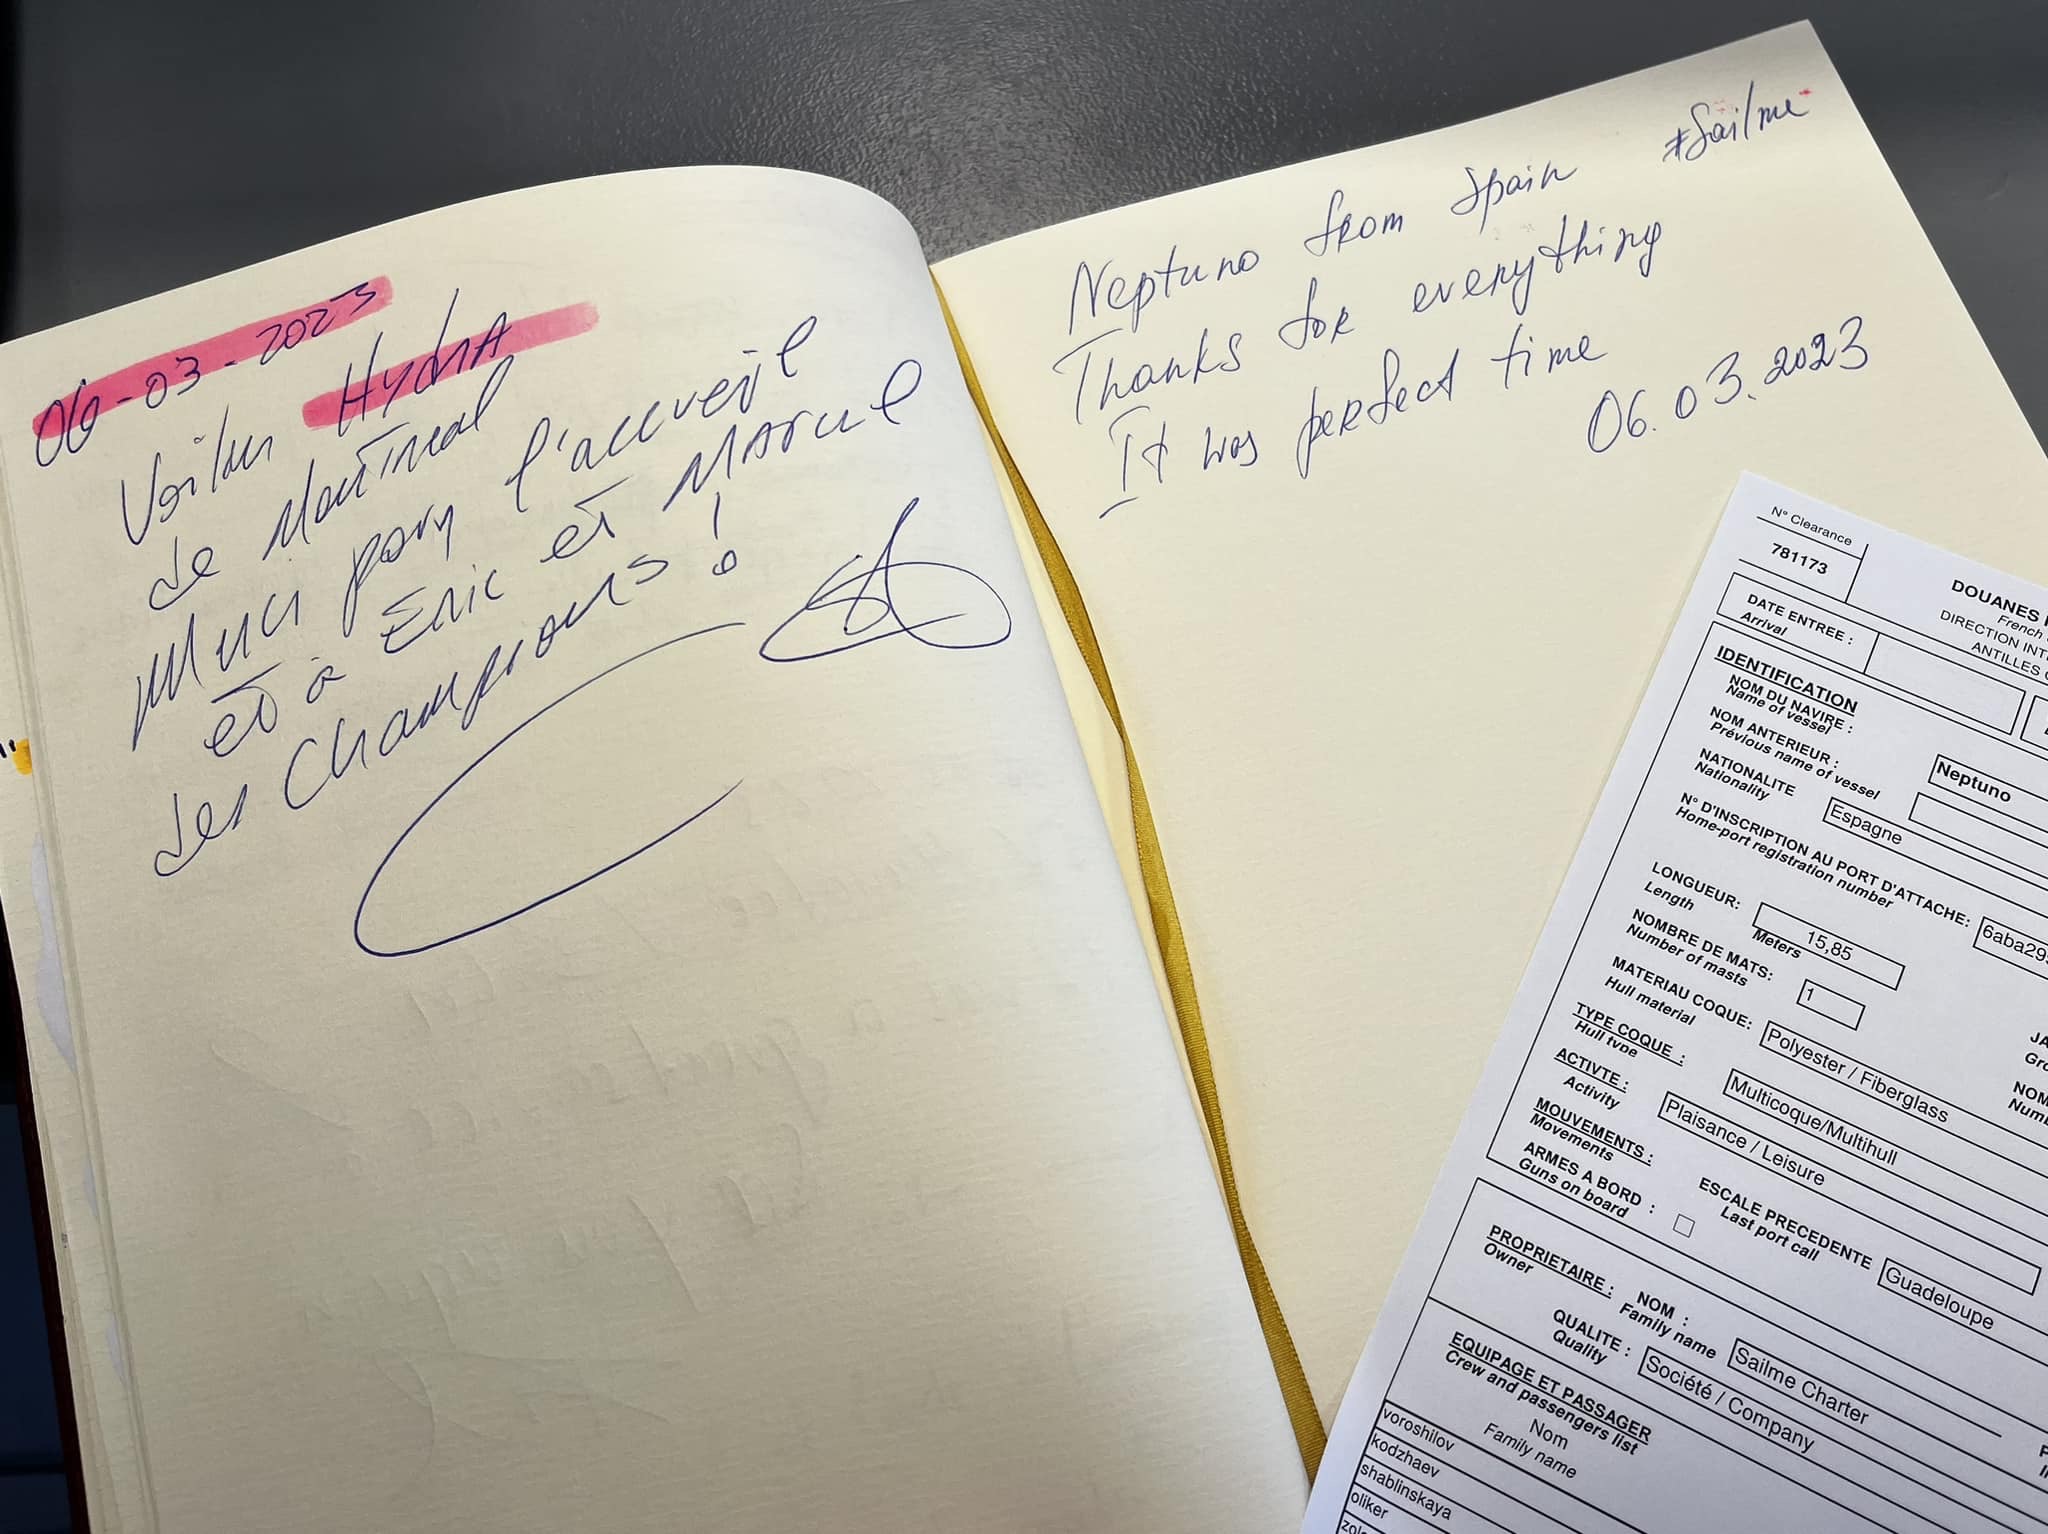 06-03-2023
Voilier HydrA
de Montreal
Merci pour l'accueil
et à Eric et Marcel
des Champions !
#Sailme
Neptuno from Spain
Thanks for everything
It was perfect time
06.03.2023
N° Clearance
781173
DOUANES
French
DIRECTION
ANTILLES
DATE ENTREE :
Arrival
IDENTIFICATION
NOM DU NAVIRE :
Name of vessel
Neptuno
NOM ANTERIEUR :
Prévious name of vessel
NATIONALITE
Nationality
Espagne
N° D'INSCRIPTION AU PORT D'ATTACHE:
Home-port registration number
6aba29
LONGUEUR:
Length
15,85
Meters
NOMBRE DE MATS:
Number of masts
1
MATERIAU COQUE:
Hull material
Polyester / Fiberglass
TYPE COQUE :
Hull type
Multicoque/Multihull
ACTIVTE :
Activity
Plaisance / Leisure
MOUVEMENTS :
Movements
ESCALE PRECEDENTE
Last port call
Guadeloupe
ARMES A BORD :
Guns on board
PROPRIETAIRE :
Owner
NOM :
Family name
Sailme Charter
QUALITE :
Quality
Société / Company
EQUIPAGE ET PASSAGER
Crew and passengers list
Nom
Family name
voroshilov
kodzhaev
shablinskaya
oliker